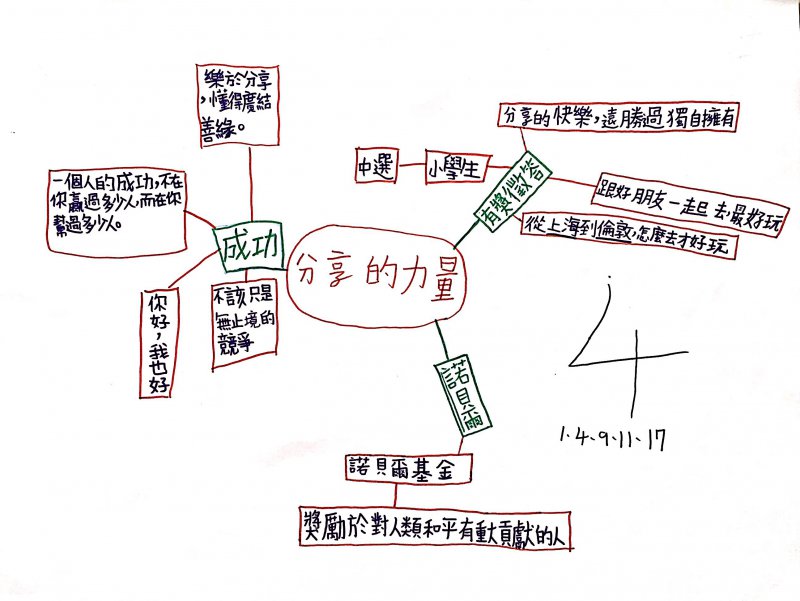 分享的力量
成功
樂於分享
，懂得廣結
善緣。
一個人的成功，不在
你贏過多少人，而在你
幫過多少人。
你好，我也好
不該只是
無止境的
競爭
有獎徵答
分享的快樂，遠勝過獨自擁有
小學生
中選
跟好朋友一起去最好玩
從上海到倫敦，怎麼去才好玩
諾貝爾
諾貝爾基金
獎勵於對人類和平有重大貢獻的人
4
1.4.9.11.17